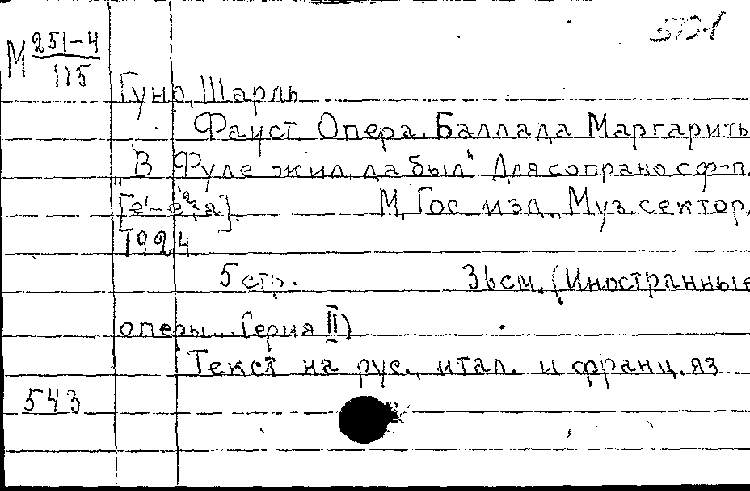 М 251-4
115
Гуно, Шарль
Фауст. Опера. Баллада Маргариты
"В Фуле жил, да был" Для сопрано с ф-п.
М, Гос. изд., Муз. сектор,
1924
5 стр. 36 см. (Иностранные
оперы... Серия II)
Текст на рус., итал. и франц. яз
543